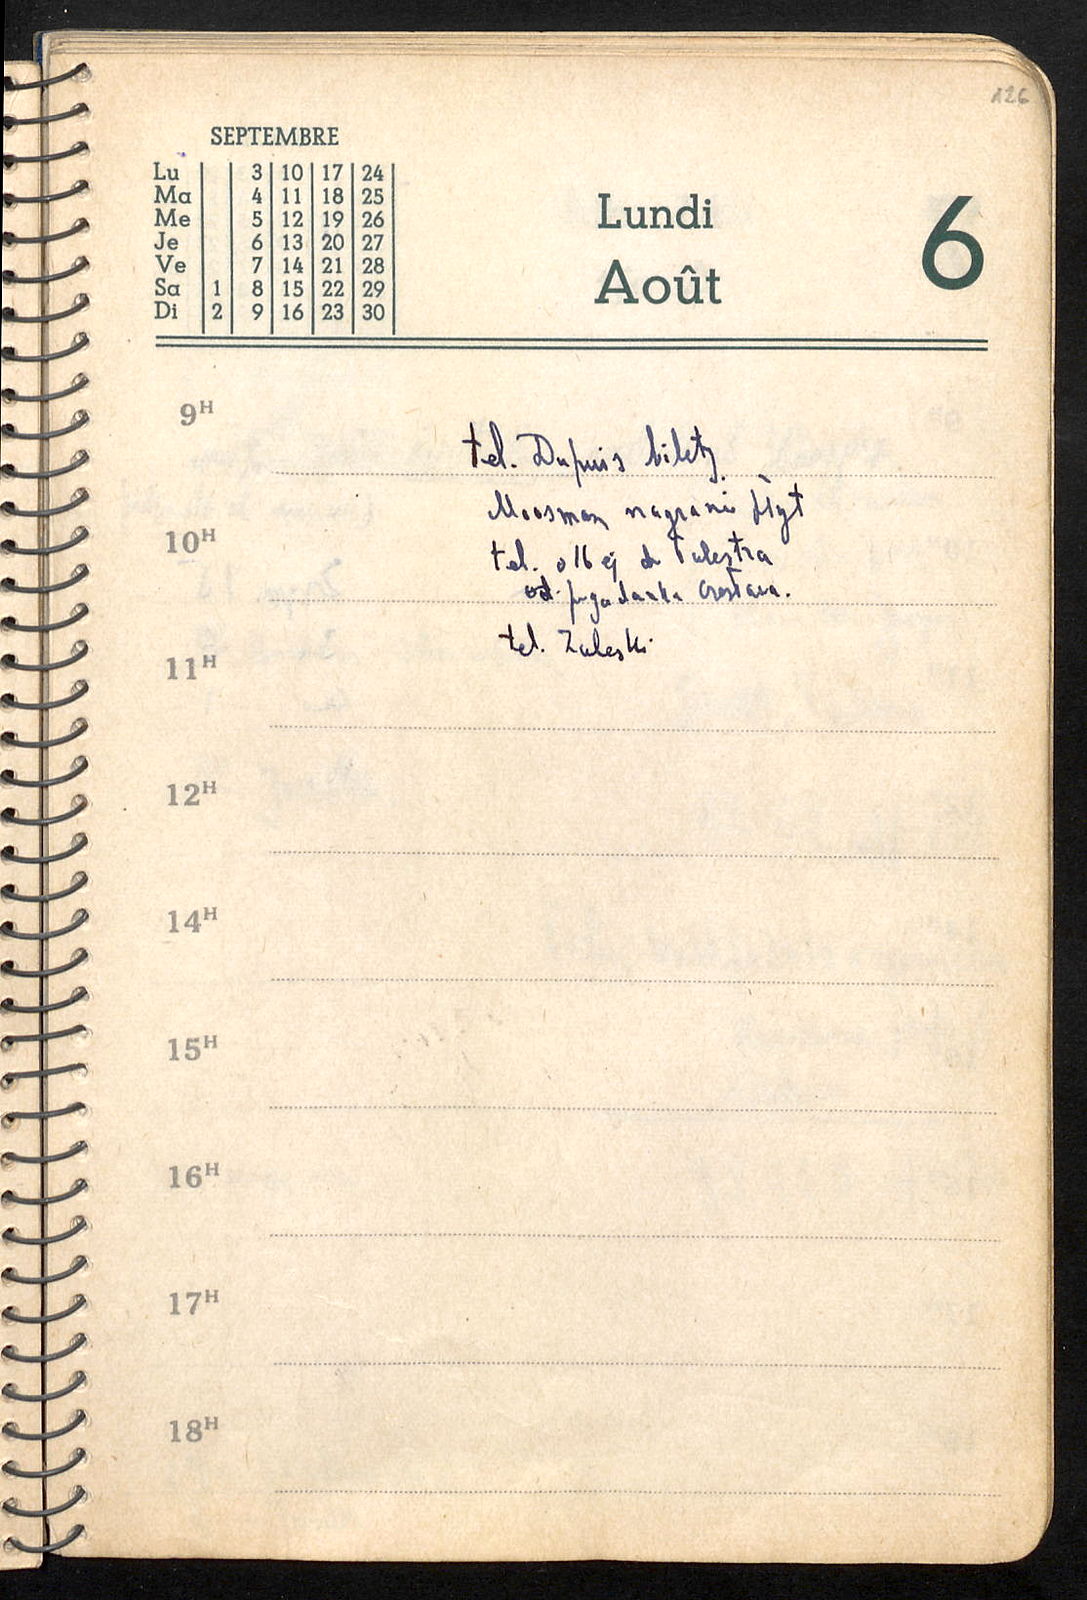 126
SEPTEMBRE
Lu 3 10 17 24
Ma 4 11 18 25
Me 5 12 19 26
Je 6 13 20 27
Ve 7 14 21 28
Sa 1 8 15 22 29
Di 2 9 16 23 30
Lundi
Août
6
9H
tel. Dupuis bilety
Moosman nagranie płyt
10H
tel. do Palestra
od
tel. Zaleski
11H
12H
14H
15H
16H
17H
18H